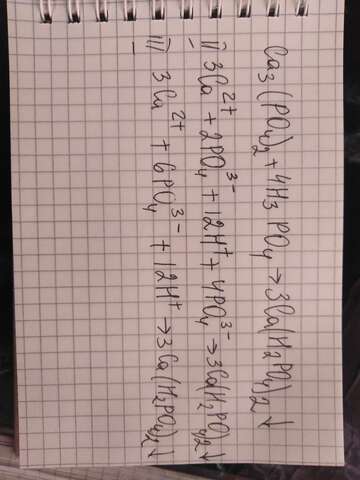 Ca₃(PO₄)₂ + 4H₃PO₄ → 3Ca(H₂PO₄)₂↓
II 3Ca²⁺ + 2PO₄³⁻ + 12H⁺ + 4PO₄³⁻ → 3Ca(H₂PO₄)₂↓
III 3Ca²⁺ + 6PO₄³⁻ + 12H⁺ → 3Ca(H₂PO₄)₂↓